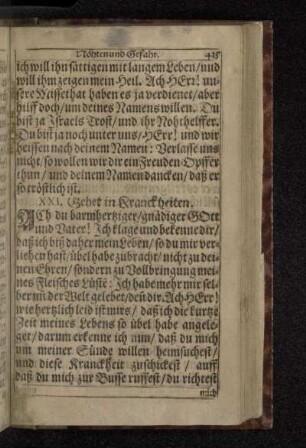 Nöhten und Gefahr. 425
ich will ihn sättigen mit langem Leben / und
will ihm zeigen mein Heil. Ach HErr! un-
sere Missethat haben es ja verdienet / aber
hilff doch / um deines Namens willen. Du
bist ja Israels Trost / und ihr Nohthelffer.
Du bist ja noch unter uns / HErr! und wir
heissen nach deinem Namen: Verlasse uns
nicht, so wollen wir dir ein Freuden-Opffer
thun / und deinem Namen dancken / daß er
so tröstlich ist.
XXI. Gebet in Kranckheiten.
ACh du barmhertziger / gnädiger GOtt
und Vater! Ich klage und bekenne dir /
daß ich biß daher mein Leben / so du mir ver-
liehen hast / übel habe zubracht / nicht zu dei-
nen Ehren / sondern zu Vollbringung mei-
nes Fleisches Lüste: Ich habe mehr mir sel-
ber und der Welt gelebet / den dir. Ach HErr!
wie hertzlich leid ist mirs / daß ich die kurtze
Zeit meines Lebens so übel habe angele-
get / darum erkenne ich nun / daß du mich
um meiner Sünde willen heimsuchest /
und diese Kranckheit zuschickest / auff
daß du mich zur Busse ruffest / du richtest
mich